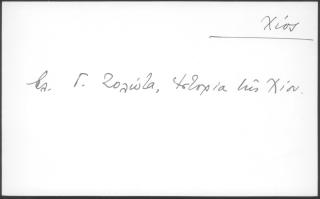 Χίος
βλ. Γ. Ζολώτα, Ἱστορία τῆς Χίου.